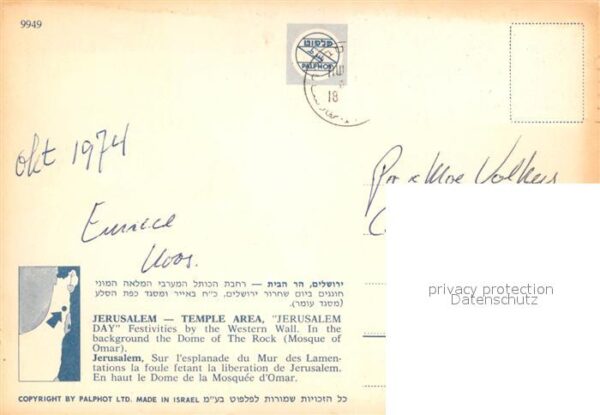 9949
פלפוט
PALPHOT
18
okt 1974
Volkers
privacy protection
Datenschutz
ירושלים, הר הבית — רחבת הכותל המערבי המלאה המוני
חוגגים ביום שחרור ירושלים, כ״ח באייר ומסגד כפת הסלע
(מסגד עומר).
JERUSALEM — TEMPLE AREA, "JERUSALEM
DAY" Festivities by the Western Wall. In the
background the Dome of The Rock (Mosque of
Omar).
Jerusalem, Sur l'esplanade du Mur des Lamen-
tations la foule fetant la liberation de Jerusalem.
En haut le Dome de la Mosquée d'Omar.
COPYRIGHT BY PALPHOT LTD. MADE IN ISRAEL כל הזכויות שמורות לפלפוט בע״מ